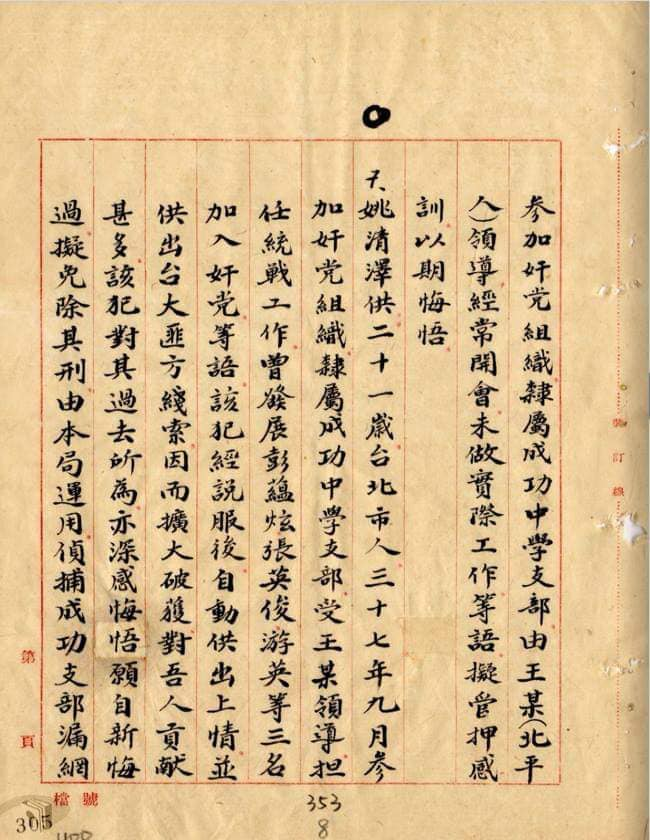 參加奸党組織隸屬成功中學支部由王某(北平
人)領導經常開會未做實際工作等語擬管押感
訓以期悔悟
天姚清澤供二十一歲台北市人三十七年九月參
加奸党組織隸屬成功中學支部受王某領導担
任統戰工作曾發展彭蘊炫張英俊游英等三名
加入奸党等語該犯經説服後自動供出上情並
供出台大匪方綫索因而擴大破獲對吾人貢献
甚多該犯對其過去所為亦深感悔悟願自新悔
過擬免除其刑由本局運用偵捕成功支部漏網
裝訂線
第 頁
檔號
353
8
305